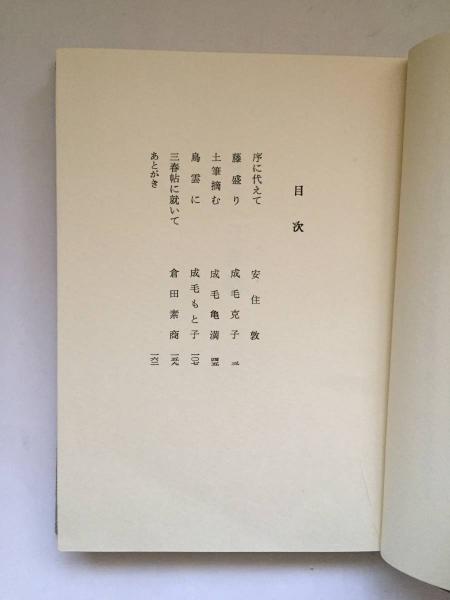 目次
序に代えて 安住敦
藤盛り 成毛克子
土筆摘む 成毛亀満
鳥雲に 成毛もと子 一〇七
三春帖に就いて 倉田素商
あとがき 一六二